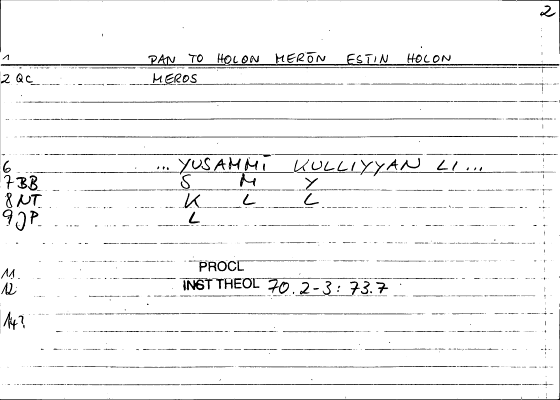 2
1 PAN TO HOLON MERŌN ESTIN HOLON
2 QC MEROS
6 ... YUSAMMĪ KULLIYYAN LI ...
7 BB S M Y
8 NT K L L
9 JP L
11 PROCL
12 INST THEOL 70.2-3: 73.7
14?